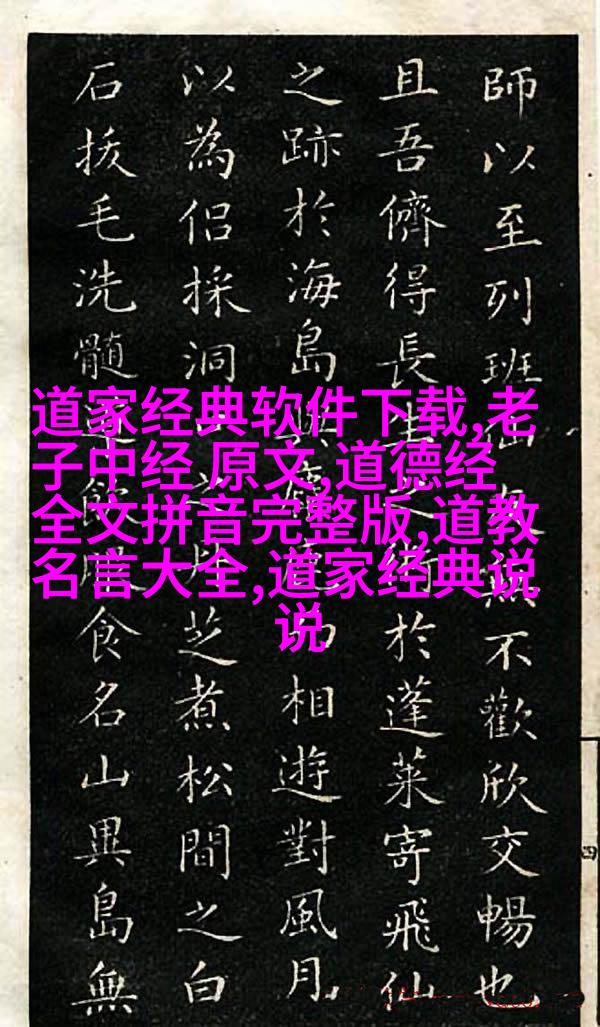 師以至列班仙無不歡欣交暢也
且吾儕得長生之術於蓬萊寄飛仙
之跡於海島相遊對風月
以為侶採洞之丹芝煮松間之白
石拔毛洗髓飲食名山異島無
道家经典软件下载,老
子中经 原文,道德经
全文拼音完整版,道教
名言大全,道家经典说
说